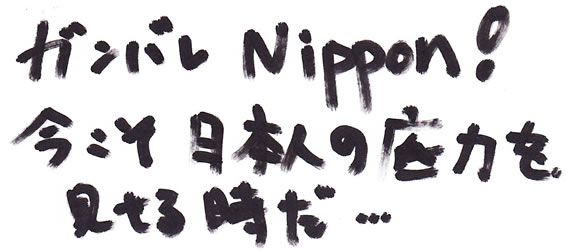 ガンバレ Nippon!
今こそ日本人の底力を。
見せる時だ…